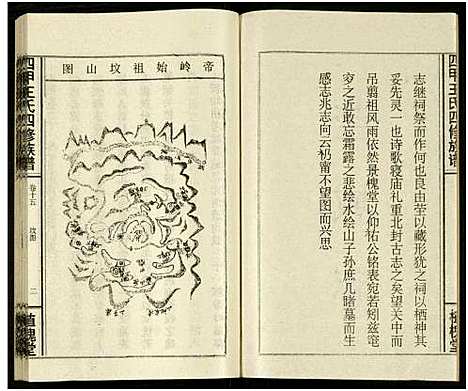 四甲王氏四修族谱
志继祠祭而作也何良由茔以藏形犹之祠以栖神其
妥先灵一也诗歌寝庙礼重北封古志之矣望关中而
吊翦祖风雨依然景槐堂以仰祐公铭表宛若矧兹窀
穸之近敢忘霜露之悲绘水绘山子孙庶几睹墓而生
感志兆志向云礽甯不望图而兴思
槐堂
帝岭始祖坟山图
四甲王氏四修族谱
卷十五
坟图
二
植槐堂